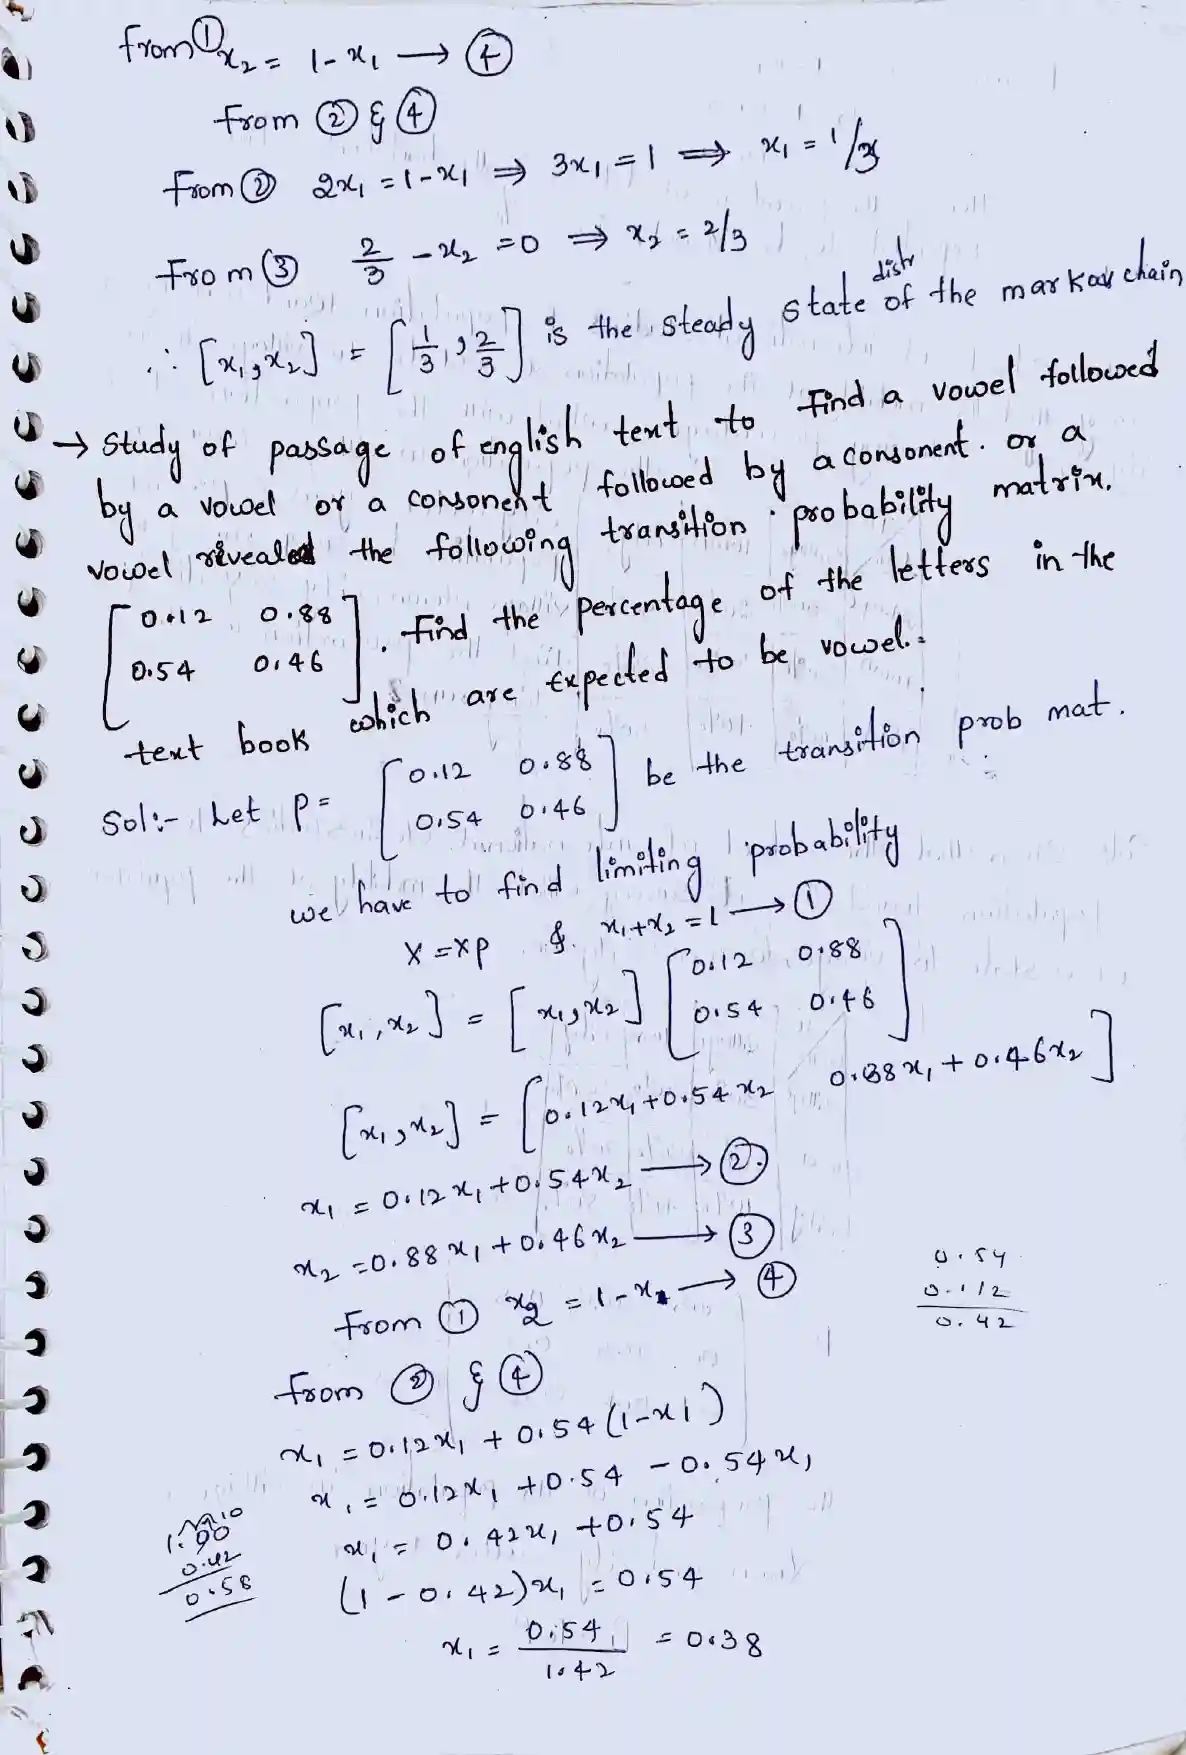 from ① x₂ = 1-x₁ → ④
from ② & ④
from ② 2x₁ = 1-x₁ ⇒ 3x₁ = 1 ⇒ x₁ = 1/3
From ③ 2/3 - x₂ = 0 ⇒ x₂ = 2/3
∴ [x₁, x₂] = [1/3, 2/3] is the steady state distr of the markov chain
→ Study of passage of english text to find a vowel followed
by a vowel or a consonent followed by a consonent. or a
vowel revealed the following transition probability matrix.
[0.12 0.88
0.54 0.46]. Find the percentage of the letters in the
text book which are expected to be vowel.
Sol:- Let P = [0.12 0.88
0.54 0.46] be the transition prob mat.
we have to find limiting probability
X = XP & x₁+x₂ = 1 → ①
[x₁, x₂] = [x₁, x₂] [0.12 0.88
0.54 0.46]
[x₁, x₂] = [0.12x₁+0.54x₂ 0.88x₁+0.46x₂]
x₁ = 0.12x₁+0.54x₂ → ②
x₂ = 0.88x₁+0.46x₂ → ③
From ① x₂ = 1-x₁ → ④
0.54
0.12
0.42
from ② & ④
x₁ = 0.12x₁ + 0.54(1-x₁)
x₁ = 0.12x₁ + 0.54 - 0.54x₁
x₁ = 0.42x₁ + 0.54
(1-0.42)x₁ = 0.54
x₁ = 0.54/1.42 = 0.38
1.00
0.42
0.58